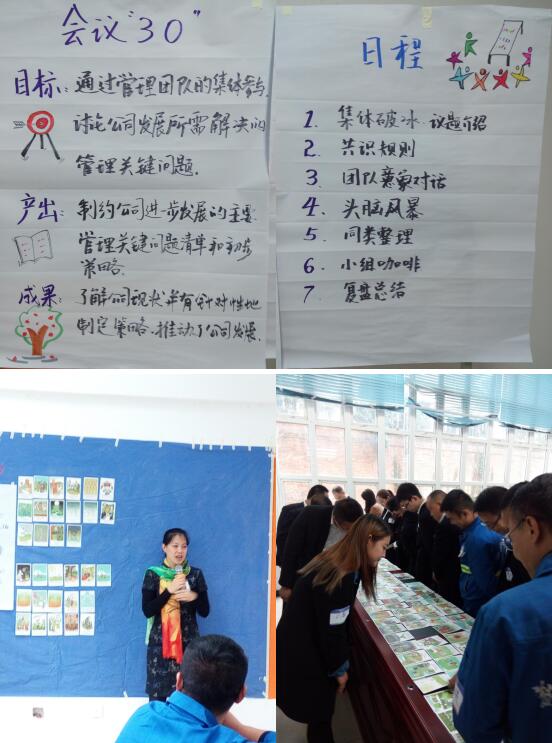 会议"30"
目标：通过管理团队的集体参与，
讨论公司发展所需解决的
管理关键问题.
产出：制约公司进一步发展的主要
管理关键问题清单和初步
策略.
成果：了解公司现状并有针对性地
制定策略、推动了公司发展.
日程
1. 集体破冰、议题介绍
2 共识规则
3 团队意象对话
4 头脑风暴
5 同类整理
6 小组咖啡
7 复盘总结